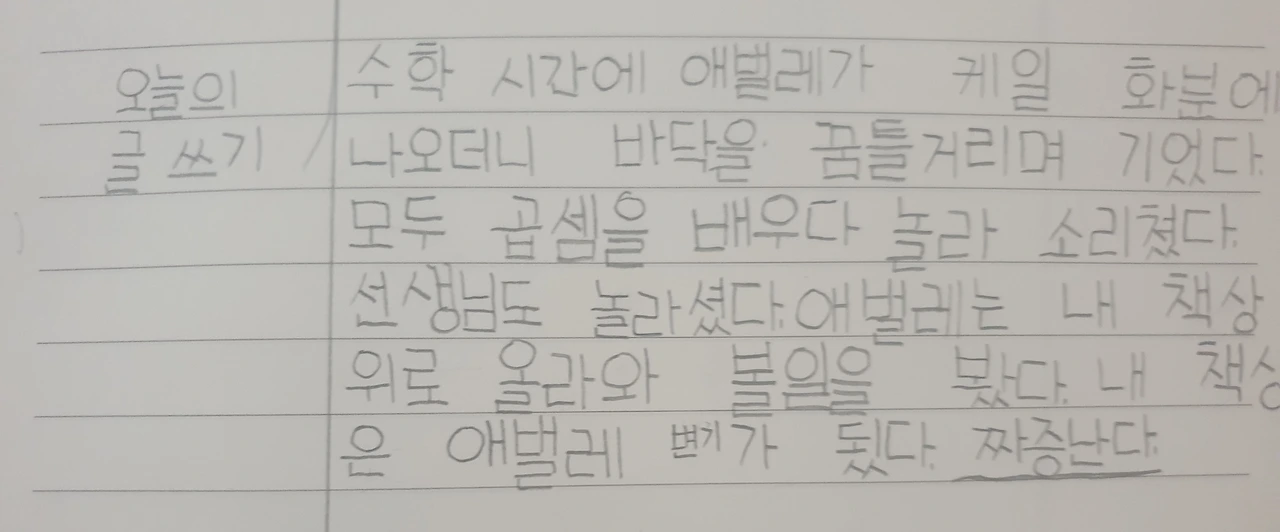 오늘의
글 쓰기
수학 시간에 애벌레가 케일 화분에
나오더니 바닥을 꿈틀거리며 기었다.
모두 곱셈을 배우다 놀라 소리쳤다.
선생님도 놀라셨다. 애벌레는 내 책상
위로 올라와 볼일을 봤다. 내 책상
은 애벌레 변기가 됬다. 짜증난다.